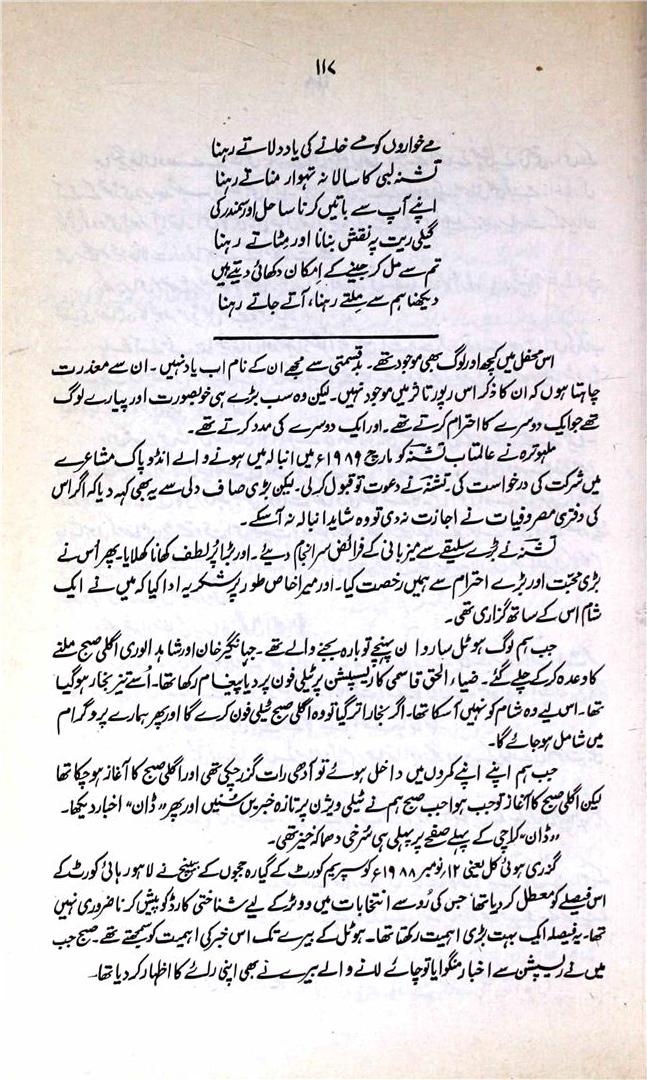 ۱۱۷
مے خواروں کو مے خانے کی یاد دلاتے رہنا
تشنہ لبی کا سالانہ تہوار مناتے رہنا
اپنے آپ سے باتیں کرنا ساحل اور سمندر کی
گیلی ریت پہ نقش بنانا اور مٹاتے رہنا
تم سے مل کر جینے کے امکان دکھائی دیتے ہیں
دیکھنا ہم سے ملتے رہنا، آتے جاتے رہنا
اس محفل میں کچھ اور لوگ بھی موجود تھے۔ بدقسمتی سے مجھے ان کے نام اب یاد نہیں۔ ان سے معذرت
چاہتا ہوں کہ ان کا ذکر اس رپورتاثر میں موجود نہیں۔ لیکن وہ سب بڑے ہی خوبصورت اور پیارے لوگ
تھے جو ایک دوسرے کا احترام کرتے تھے۔ اور ایک دوسرے کی مدد کرتے تھے۔
ملہوترہ نے عالمتاب تشنہ کو مارچ ۱۹۸۹ء میں انبالہ میں ہونے والے انڈو پاک مشاعرے
میں شرکت کی درخواست کی۔ تشنہ نے دعوت تو قبول کر لی۔ لیکن بڑی صاف دلی سے یہ بھی کہہ دیا کہ اگر اس
کی دفتری مصروفیات نے اجازت نہ دی تو وہ شاید انبالہ نہ آ سکے۔
تشنہ نے بڑے سلیقے سے میزبانی کے فرائض سرانجام دیئے۔ اور بڑا پُر لطف کھانا کھلایا۔ پھر اُس نے
بڑی محبت اور بڑے احترام سے ہمیں رخصت کیا۔ اور میرا خاص طور پر شکریہ ادا کیا کہ میں نے ایک
شام اس کے ساتھ گزاری تھی۔
جب ہم لوگ ہوٹل ساروان پہنچے تو بارہ بجنے والے تھے۔ جہانگیر خان اور شاہد الوری اگلی صبح ملنے
کا وعدہ کر کے چلے گئے۔ ضیاء الحق قاسمی کا ریسپشن پر ٹیلی فون پر دیا پیغام رکھا تھا۔ اُسے تیز بخار ہو گیا
تھا۔ اس لیے وہ شام کو نہیں آ سکا تھا۔ اگر بخار اتر گیا تو وہ اگلی صبح ٹیلی فون کرے گا اور پھر ہمارے پروگرام
میں شامل ہو جائے گا۔
جب ہم اپنے اپنے کمروں میں داخل ہوئے تو آدھی رات گزر چکی تھی اور اگلی صبح کا آغاز ہو چکا تھا
لیکن اگلی صبح کا آغاز تو جب ہوا جب صبح ہم نے ٹیلی ویژن پر تازہ خبریں سُنیں اور پھر ”ڈان“ اخبار دیکھا۔
”ڈان“ کراچی کے پہلے صفحے پر پہلی ہی سُرخی دھماکہ خیز تھی۔
گزری ہوئی کل یعنی ۱۲؍ نومبر ۱۹۸۸ء کو سپریم کورٹ کے گیارہ ججوں کے بینچ نے لاہور ہائی کورٹ کے
اس فیصلے کو معطل کر دیا تھا جس کی رُو سے انتخابات میں ووٹر کے لیے شناختی کارڈ کو پیش کرنا ضروری نہیں
تھا۔ یہ فیصلہ ایک بہت بڑی اہمیت رکھتا تھا۔ ہوٹل کے بیرے تک اس خبر کی اہمیت کو سمجھتے تھے۔ صبح جب
میں نے ریسپشن سے اخبار منگوایا تو چائے لانے والے بیرے نے بھی اپنی رائے کا اظہار کر دیا تھا۔